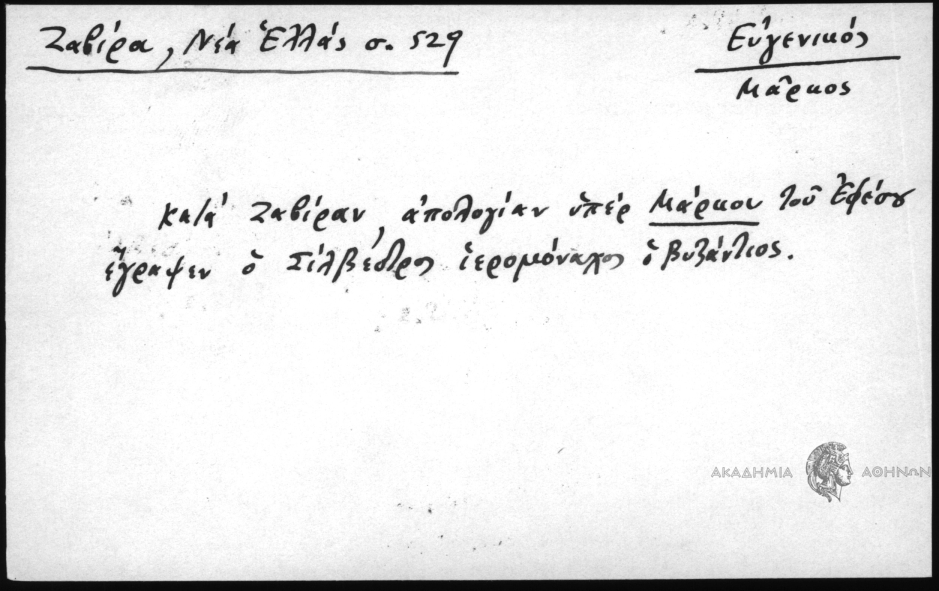 Ζαβίρα, Νέα Ἑλλάς σ. 529
Εὐγενικός
Μᾶρκος
Κατά Ζαβίραν, ἀπολογίαν ὑπέρ Μάρκου τοῦ Ἐφέσου
ἔγραψεν ὁ Σίλβεστρος ἱερομόναχος ὁ Βυζάντιος.
ΑΚΑΔΗΜΙΑ ΑΘΗΝΩΝ